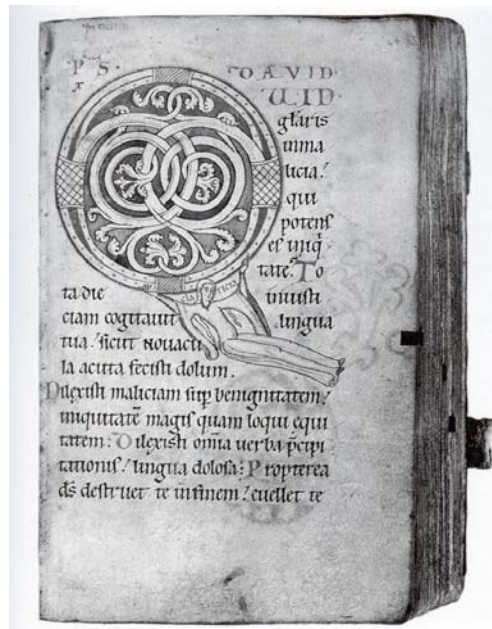 P S. DAVID
UID
glaris
inma
licia:
qui
potens
es iniq
tate. To
ta die iniusti
ciam cogitauit lingua
tua: sicut nouacu
la acuta fecisti dolum.
Dilexisti maliciam sup benignitatem:
iniquitatē magis quam loqui equi
tatem: Dilexisti omīa uerba p̄cipi
tationis: lingua dolosa: Propterea
ds̄ destruet te infinem: euellet te